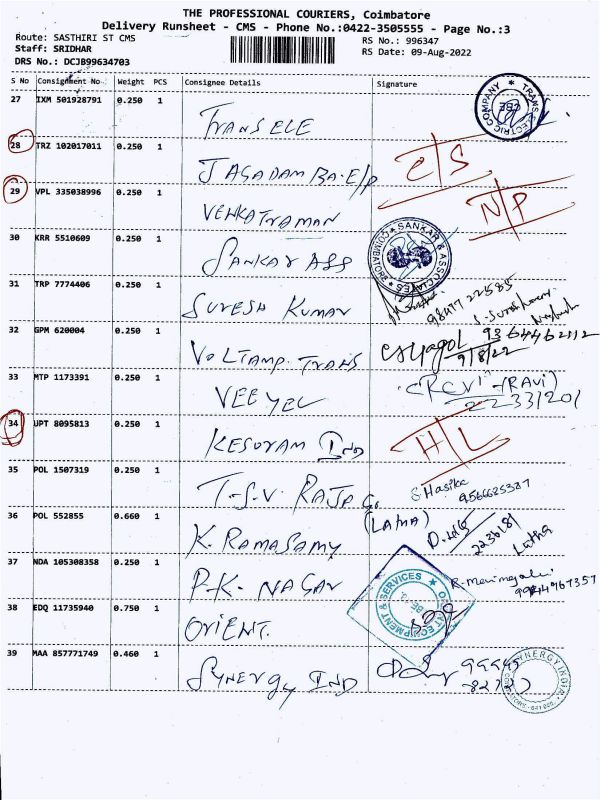 THE PROFESSIONAL COURIERS, Coimbatore
Delivery Runsheet - CMS - Phone No.:0422-3505555 - Page No.:3
Route: SASTHIRI ST CMS
RS No.: 996347
Staff: SRIDHAR
RS Date: 09-Aug-2022
DRS No.: DCJB99634703
S No Consignment No Weight PCS Consignee Details Signature
27 IXM 501928791 0.250 1 TRANS ELE
TRANS ELECTRIC COMPANY
28 TRZ 102017011 0.250 1 JAGADAMBA-E/P C/S
29 VPL 335038996 0.250 1 VENKATRAMAN N/P
30 KRR 5510609 0.250 1 SANKAR ASS
SANKAR & ASSOCIATES COIMBATORE
31 TRP 7774406 0.250 1 SURESH KUMAR
32 GPM 620004 0.250 1 VOLTAMP. TRANS
9364462112
9/8/22
33 MTP 1173391 0.250 1 VEE YEL (RAVi)
2233201
34 UPT 8095813 0.250 1 KESORAM IND H/L
35 POL 1507319 0.250 1 T-S-V- RAJA G.
Hasika
9566625387
(LATHA)
36 POL 552855 0.660 1 K. RAMASAMY
2236181
Latha
37 NDA 105308358 0.250 1 P.K- NAGAR
9944967357
38 EDQ 11735940 0.750 1 ORIENT.
ORIENT EQUIPMENT & SERVICES
CBE-
39 MAA 857771749 0.460 1 SYNERGY IND
SYNERGY INDIA